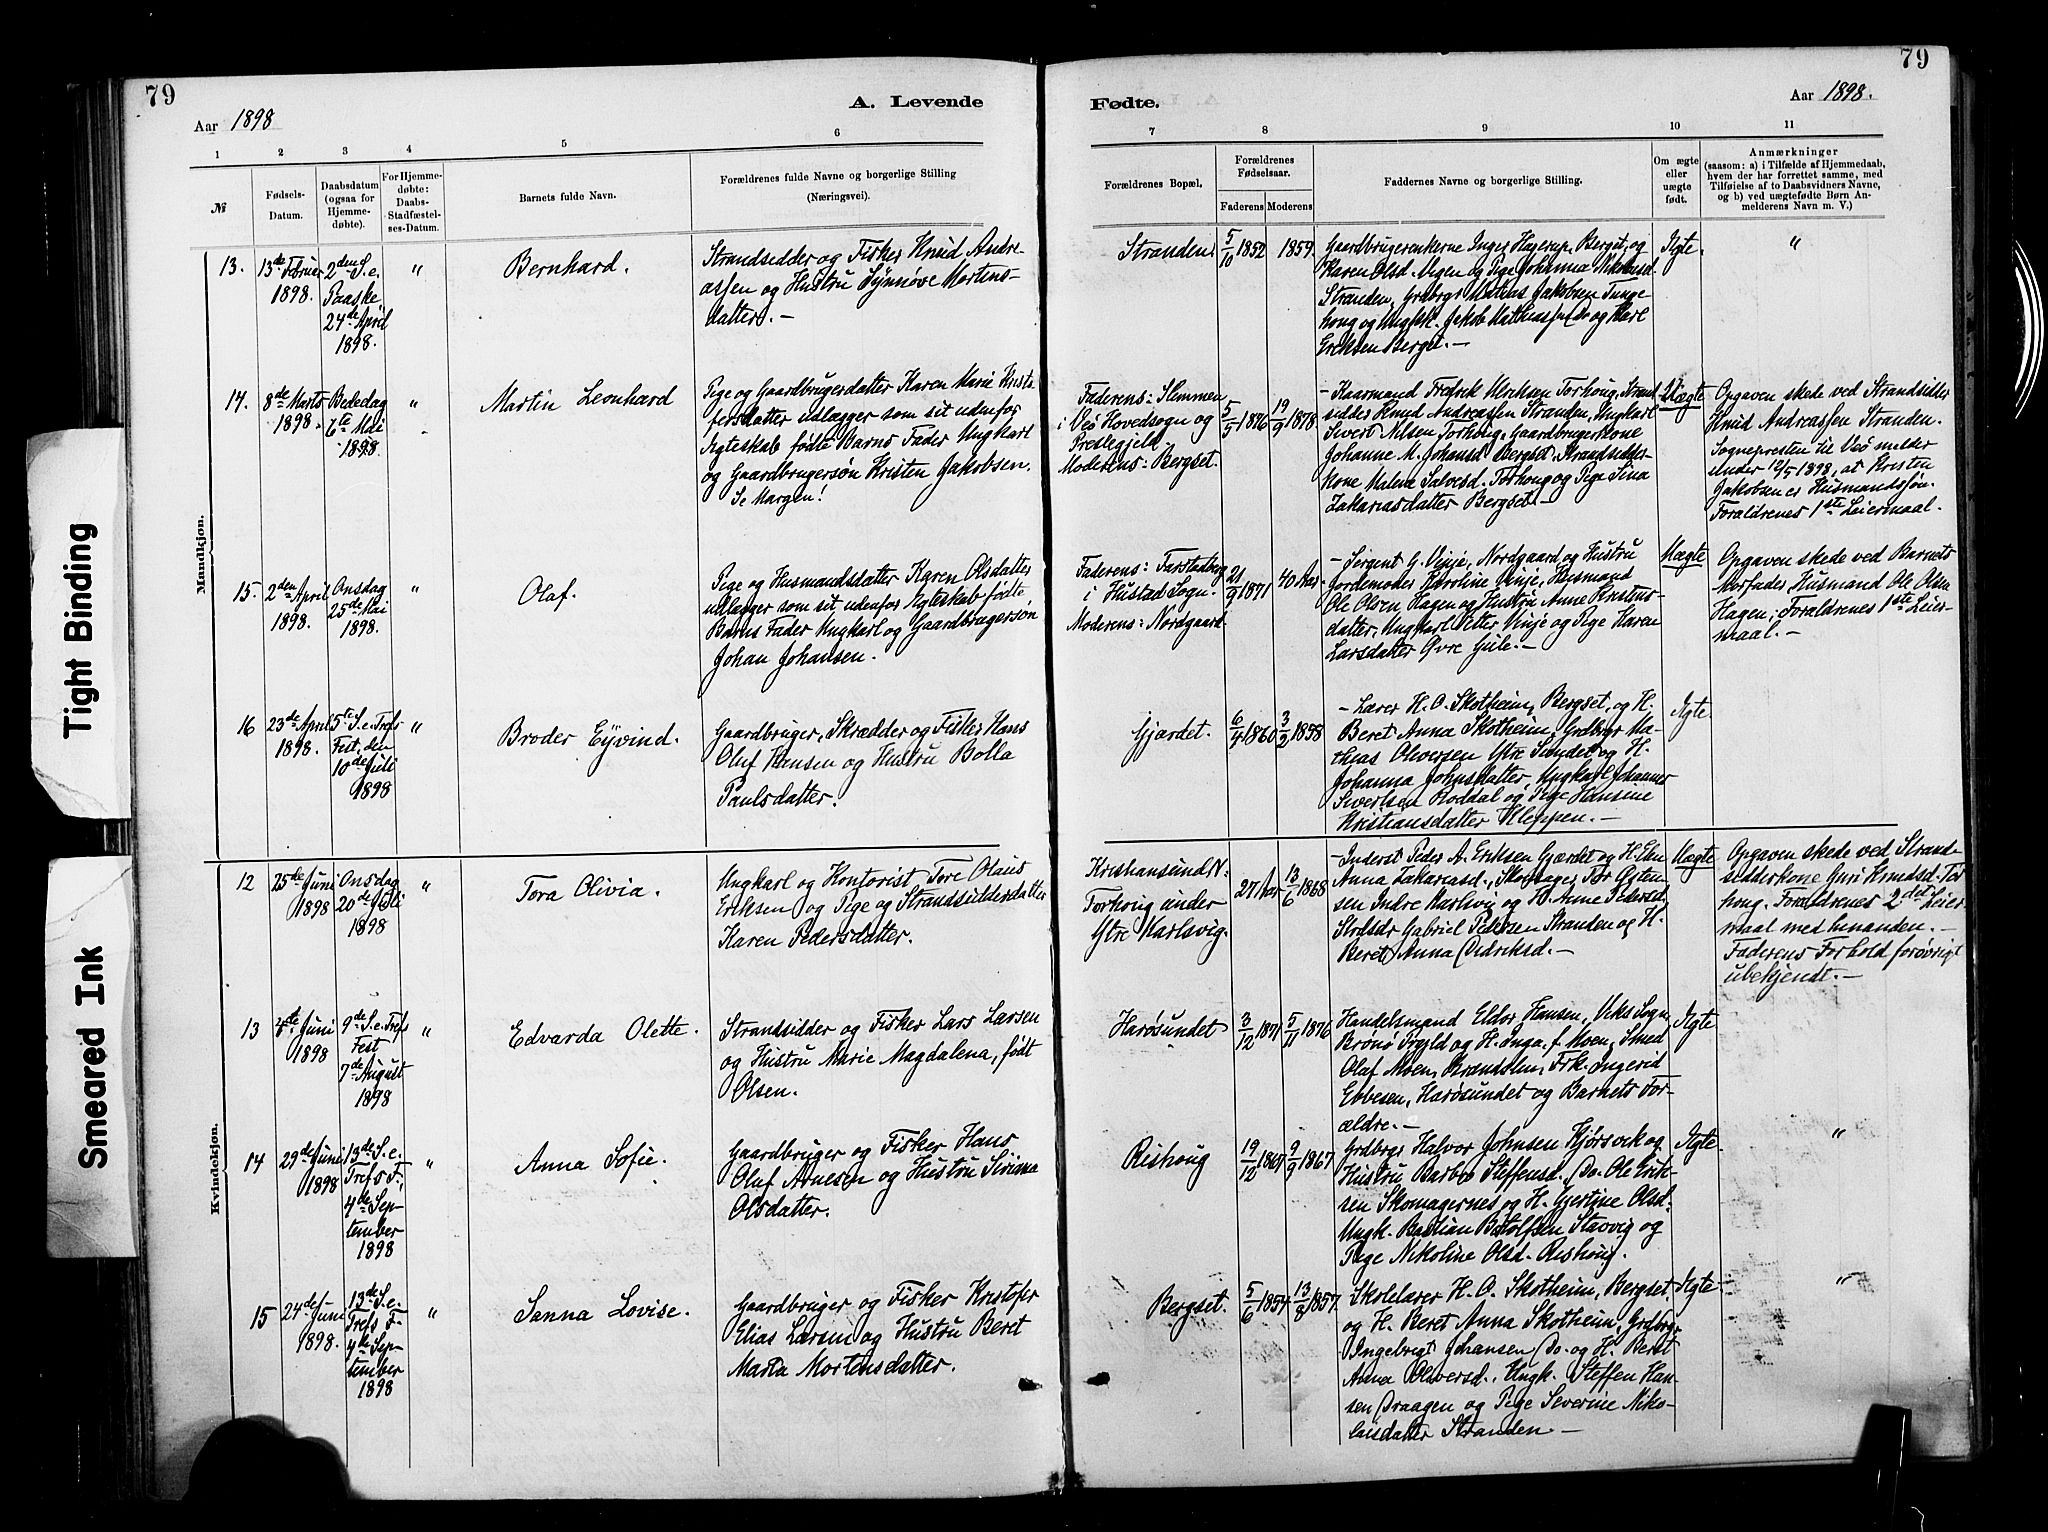 79
A. Levende
Aar 1898
1 2 3 4 5 6
№
Fødsels-Datum.
Daabsdatum (ogsaa for Hjemmedøbte).
For Hjemmedøbte: Daabs-Stadfæstelses-Datum.
Barnets fulde Navn.
Forældrenes fulde Navne og borgerlige Stilling (Næringsvei).
79
Fødte.
Aar 1898.
7 8 9 10 11
Forældrenes Bopæl.
Forældrenes Fødselsaar.
Faderens Moderens
Faddernes Navne og borgerlige Stilling.
Om ægte eller uægte født.
Anmærkninger
(saasom: a) i Tilfælde af Hjemmedaab,
hvem der har forrettet samme, med
Tilføielse af to Daabsvidners Navne,
og b) ved uægtefødte Børn Anmelderens Navn m. V.)
Mandkjøn.
13.
13de Februar
1898.
2den S. e.
Paaske,
24de April
1898.
"
Bernhard.
Strandsidder og Fisker Knud Andre-
assen og Hustru Synnøve Martens-
datter. —
Stranden
5/10 1852
1859.
Gaardbrugerenkerne Inger Hagerup, Berget, og
Karen Olsd. Megen og Pige Johanna Nikolaisd.
Stranden, Grdbrgr Mathias Jakobsen Tunge
houg og Ungk. Jakob Matthiassen Do og Karl
Eriksen Berget. —
Ægte
"
14.
8de Marts
1898.
Bededag
6te Mai
1898.
"
Martin Leonhard
Pige og Gaardbrugerdatter Karen Marie Kristo-
fersdatter udlægger som sit udenfor
Ægteskab fødte Barns Fader Ungkarl
og Gaardbrugersøn Kristen Jakobsen.
Se Margen!
Faderens: Slemmen
i Veø Hovedsogn og
Prestegjeld.
Moderens: Bergset.
5/5 1876
19/9 1878
— Kaarmand Fredrik Ulriksen Torhoug, Strand-
sidder Knud Andreassen Stranden, Ungkarl
Sivert Nilsen Torhoug, Gaardbrugerkone
Johanne M. Johansd. Bergset, Strandsidder-
kone Malene Salvesd. Torhoug og Pige Sina
Zakariasdatter Bergset. —
Uægte
Opgaven skede ved Strandsidder
Knud Andreassen Stranden.
Sognepresten til Veø melder
under 12/5 1898, at Kristen
Jakobsen er Husmandssøn.
Forældrenes 1ste Leiermaal.
15.
2den April
1898.
Onsdag
25de Mai
1898.
"
Olaf.
Pige og Husmandsdatter Karen Olsdatter
udlægger som sit udenfor Ægteskab fødte
Barns Fader Ungkarl og Gaardbrugersøn
Johan Johansen.
Faderens: Farstadberg
i Hustad Sogn.
Moderens: Nordgaard
21/9 1871
40 Aar.
— Sergent G. Vinje, Nordgaard og Hustru
Jordemoder Karoline Vinje, Husmand
Ole Olsen Hagen og Hustru Anne Kristens-
datter, Ungkarl Peter Vinje og Pige Karen
Larsdatter Øvre Gule. —
Uægte
Opgaven skede ved Barnets
Morfader Husmand Ole Olsen
Hagen; Forældrenes 1ste Leier-
maal. —
16
23de April
1898.
5te S. e. Trefs
Fest, den
10de Juli
1898
"
Broder Eyvind.
Gaardbruger, Skrædder og Fisker Hans
Oluf Hansen og Hustru Bolla
Paulsdatter.
Gjærdet.
6/4 1860
3/2 1858
— Lærer H. O. Skotheim, Bergset, og H.
Beret Anna Skotheim, Grdbrgr Ma-
thias Olversen Ytre Sundet og H.
Johanna Johnsdatter, Ungkarl Johannes
Sivertsen Roddal og Pige Hansine
Kristiansdatter Kleppen. —
Ægte
Kvindekjøn.
12
25de Juni
1898
Onsdag
20de Juli
1898
"
Tora Olivia.
Ungkarl og Kontorist Tore Olaus
Eriksen og Pige og Strandsidderdatter
Karen Pedersdatter.
Kristiansund N.
Torhoug under
Ytre Karlsvig.
27 Aar
13/6 1868
— Inderst Peder A. Eriksen Gjærdet og H. Elen
Anna Zakariasd., Skomager Tor Østen-
sen Indre Karlsvig og H. Anne Pedersd.
Strdsdr Gabriel Pedersen Stranden og H.
Beret Anna Didriksd. —
Uægte
Opgaven skede ved Strand-
sidderkone Guri Knudsd. Tor
houg. Forældrenes 2det Leier-
maal med hinanden. —
Faderens Forhold forøvrigt
ubekjendt. —
13
4de Juni
1898
9de S. e. Trefs
Fest
7de August
1898
"
Edvarda Olette.
Strandsidder og Fisker Lars Larsen
og Hustru Marie Magdalena, født
Olsen.
Harøsundet
3/12 1871
5/11 1876
Handelsmand Eldor Hansen, Viks Sogn,
Brønø Prgjld og H. Inga, f. Moen, Smed
Olaf Moen, Brændolm, Frk. Ingerid
Ebbesen, Harøsundet og Barnets For-
ældre. —
Ægte
14
29de Juni
1898
13de S. e.
Trefs F.,
4de Sep-
tember
1898
"
Anna Sofie.
Gaardbruger og Fisker Hans
Oluf Arnesen og Hustru Siriana
Olsdatter.
Rishoug
19/12 1867
9/9 1867
Grdbrgr Halvor Johnsen Kjørsvik og
Hustru Barbro Steffensd., Do. Ole Erik-
sen Skomagernes og H. Gjertine Olsd.
Ungk. Bastian Botolfsen Stavvig og
Pige Nikoline Olsd. Rishoug.
Ægte
"
15
24de Juni
1898.
13de S. e.
Trefs F.
4de Sep-
tember
1898
"
Sanna Lovise.
Gaardbruger og Fisker Kristofer
Elias Larsen og Hustru Beret
Marta Mortensdatter.
Bergset.
5/6 1854
13/8 1857.
Skolelærer H. O. Skotheim, Bergset,
og H. Beret Anna Skotheim, Grdbrgr
Ingebrigt Johansen Do. og H. Beret
Anna Olaversd., Ungk. Steffen Han-
sen Draagen og Pige Severine Niko-
laisdatter Stranden. —
Ægte
"
Tight Binding
Smeared Ink